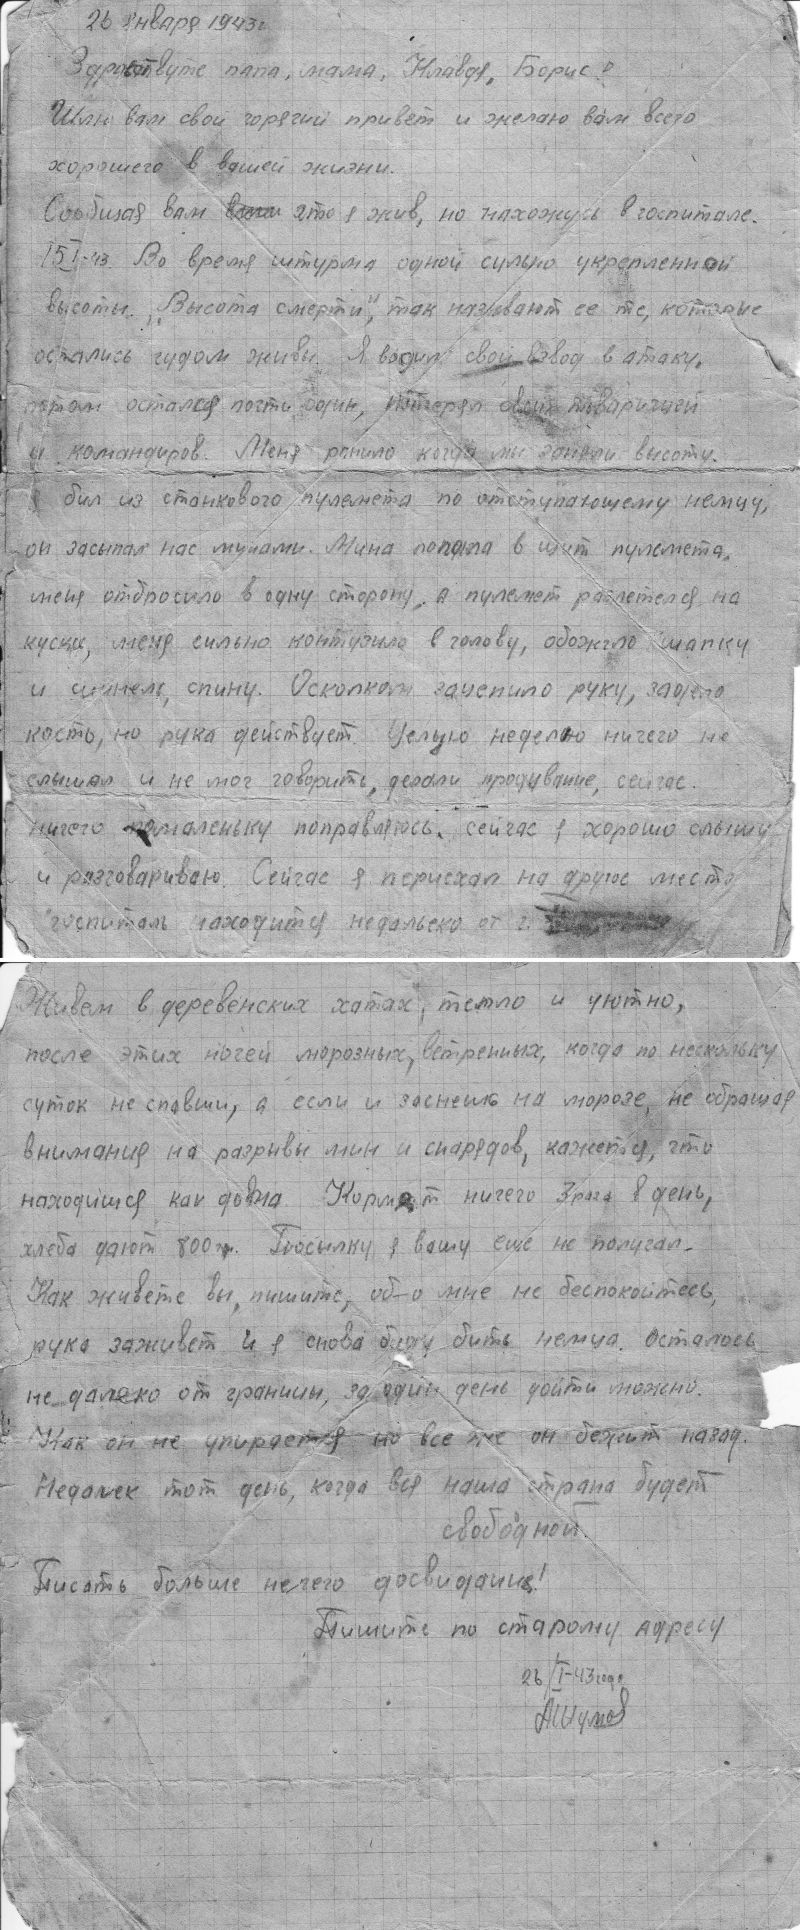 26 января 1943г
Здравствуте папа, мама, Клавдя, Борис!
Шлю вам свой горячий привет и желаю вам всего
хорошего в вашей жизни.
Сообщая вам что я жив, но нахожусь в госпитале.
15 I-43. Во время штурма одной сильно укрепленной
высоты. „Высота смерти", так называют ее те, которые
остались чудом живы. Я водил свой взвод в атаку,
потом остался почти один, потерял своих товарищей
и командиров. Меня ранило когда мы заняли высоту.
Я бил из станкового пулемета по отступающему немцу,
он засыпал нас минами. Мина попала в щит пулемета,
меня отбросило в одну сторону, а пулемет разлетелся на
куски, меня сильно контузило в голову, обожгло шапку
и шинель, спину. Осколком зацепило руку, задело
кость, но рука действует. Целую неделю ничего не
слышал и не мог говорить, делали продувание, сейчас
ничего помаленьку поправляюсь, сейчас я хорошо слышу
и разговариваю. Сейчас я периехал на другое место
госпиталь находится недальеко от г.
Живем в деревенских хатах, тепло и уютно,
после этих ночей морозных, ветренных, когда по нескольку
суток не спавши, а если и заснешь на морозе, не обращая
внимания на разрывы мин и снарядов, кажется, что
находишся как дома. Кормят ничего 3 раза в день,
хлеба дают 800гр. Посылку я вашу еще не получал.
Как живете вы, пишите, об-о мне не беспокойтесь,
рука заживет и я снова буду бить немца. Осталось
не далеко от границы, за один день дойти можно.
Как он не упирается но все же он бежит назад.
Недалек тот день, когда вся наша страна будет
свободной.
Писать больше нечего досвидания!
Пишите по старому адресу
26/I-43 года
АШумов